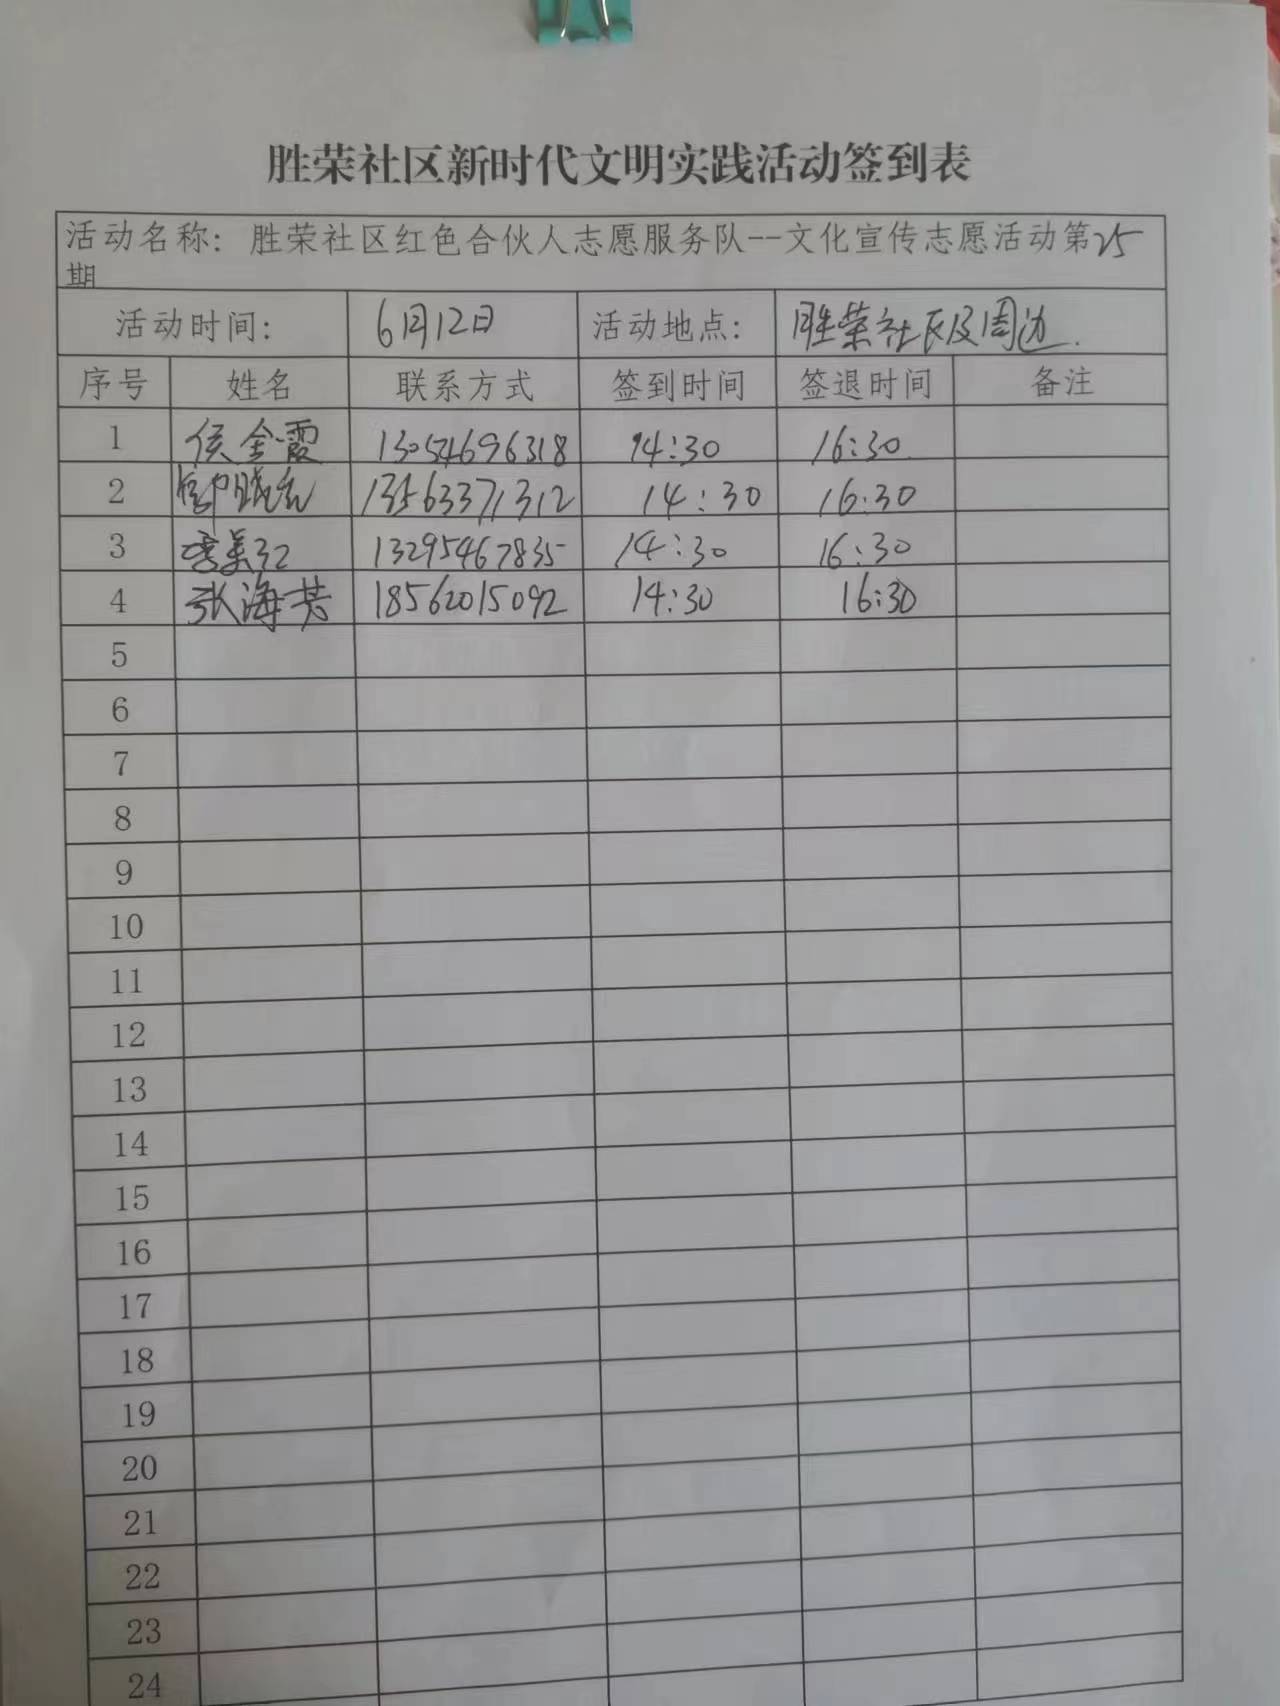 胜荣社区新时代文明实践活动签到表
活动名称：胜荣社区红色合伙人志愿服务队--文化宣传志愿活动第25
期
活动时间： 6月12日 活动地点： 胜荣社区及周边.
序号 姓名 联系方式 签到时间 签退时间 备注
1 侯全霞 13054696318 14:30 16:30
2 13563371312 14:30 16:30
3 13295467835 14:30 16:30
4 张海芸 18562015092 14:30 16:30
5
6
7
8
9
10
11
12
13
14
15
16
17
18
19
20
21
22
23
24